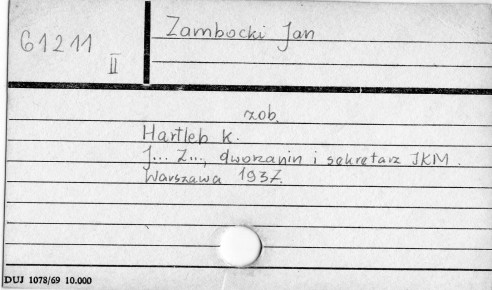 Zambocki Jan
61211
II
zob.
Hartleb K.
J... Z..., dworzanin i sekretarz JKM.
Warszawa 1937.
DUJ 1078/69 10.000